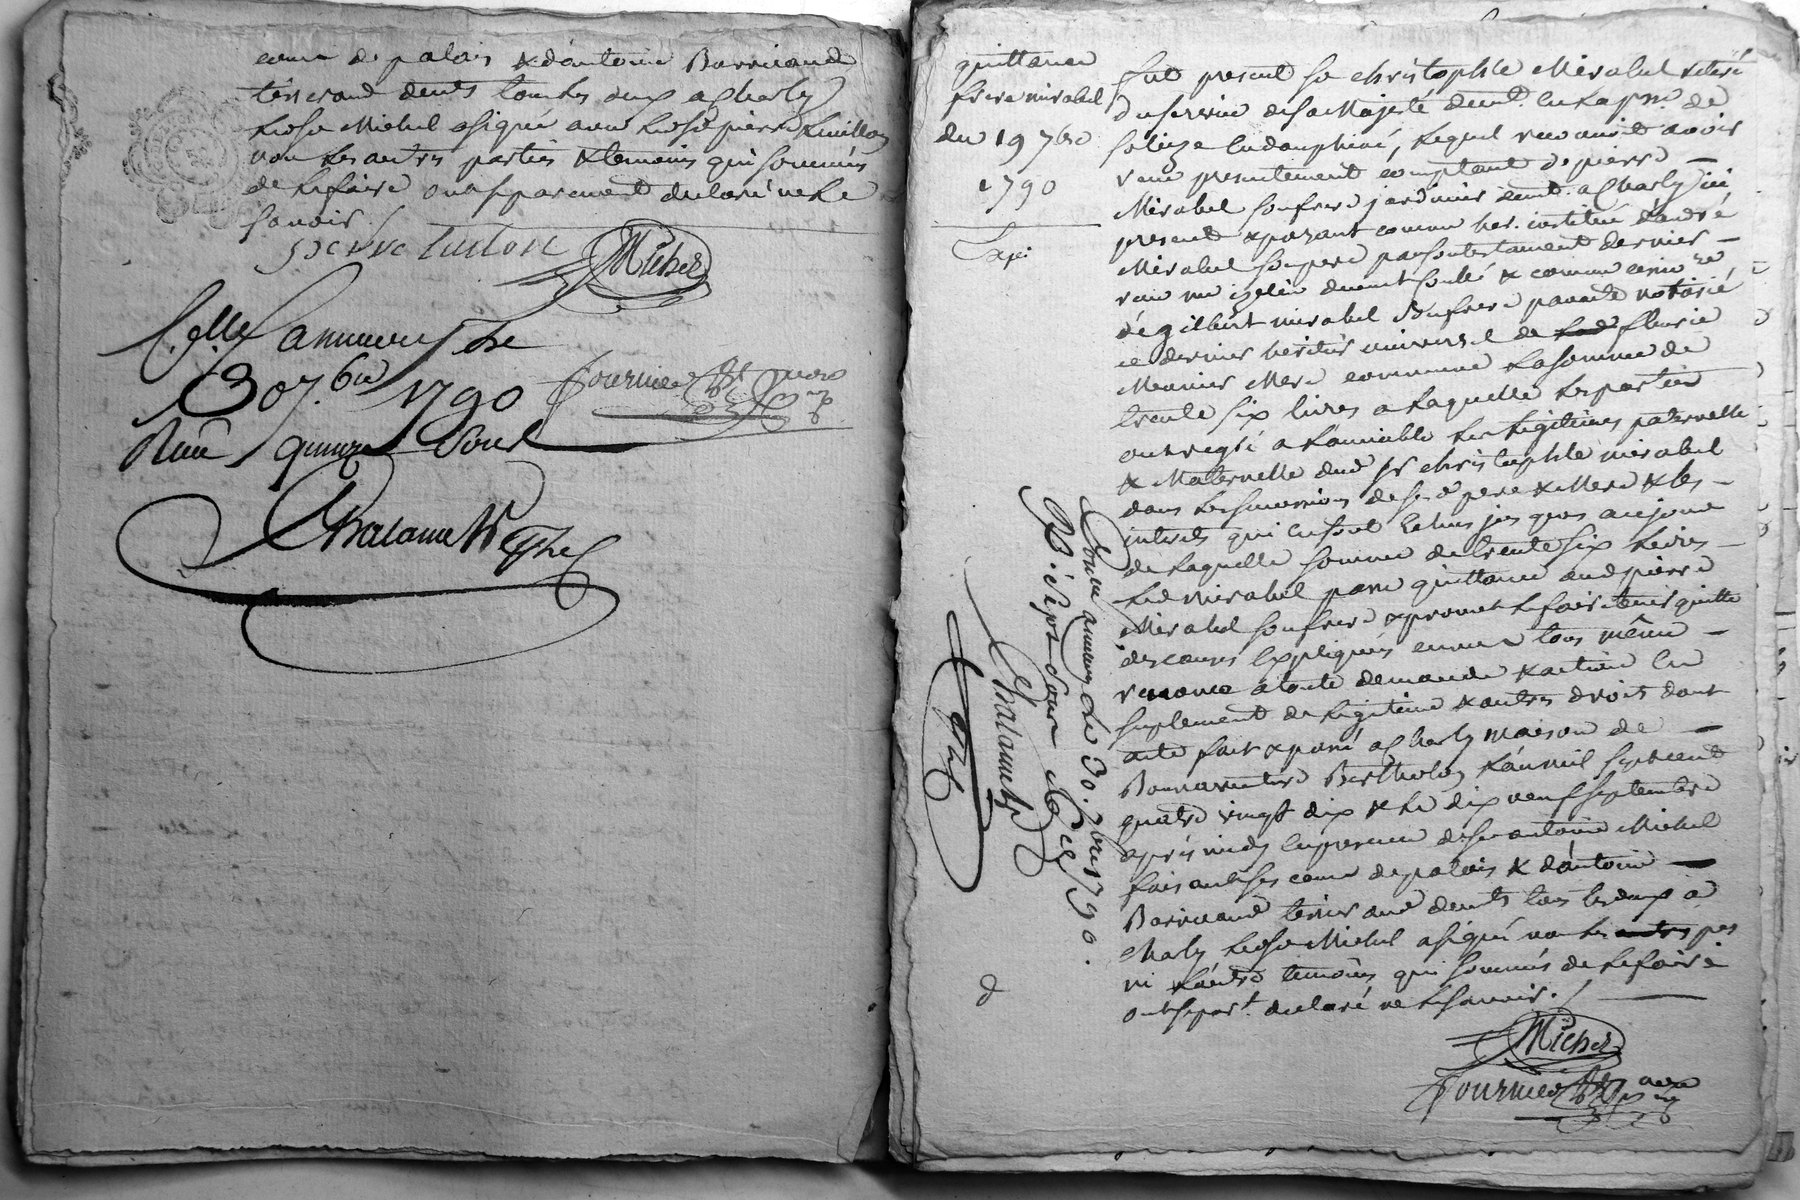 cour de palais & d'antoine Barricand
tisserand demts tous les deux a Charly
led. sr Michel a signé avec led. pierre
non les autres parties & temoins qui sommés
de le faire ont separement declaré ne le
savoir
pierre
Michel
Clle a Lannemesche
30 7.bre 1790
Reçu quinze sous
Fournier
Chalamel
quittance
frere mirabel
du 19 7bre
1790
Expé
fut present sr christophle Mirabel retiré
du service de sa Majesté demt. en la psse. de
en dauphiné, lequel reconnoit avoir
reçu presentement comptant de pierre
Mirabel son frere jardinier demt. a Charly ici
present & payant comme her. institué d'andré
Mirabel son pere par son testament dernier
reçu me duement controllé & comme
de gilbert mirabel son frere par acte notarié
ce dernier heritier universel de fleurie
Meunier Mere commune la somme de
trente six livres a laquelle les parties
ont reglé a l'amiable les legitimes paternelle
& Maternelle dud. sr christophle mirabel
dans les successions de sesd. pere & Mere & les
interets qui en sont echus jusques a ce jour
de laquelle somme de trente six livres
led. mirabel passe quittance aud. pierre
Mirabel son frere & promet le faire tenir quitte
des causes expliquées envers tous même
renonce a toute demande & action en
suplement de legitime & autres droits dont
acte fait & passé a Charly maison de
Bonnaventure Bertholon l'an mil sept cent
quatre vingt dix & le dix neuf septembre
après midy en presence de sr antoine Michel
faisant ses cour de palais & d'antoine
Barricand tisserand demts tous les deux a
Charly led. sr Michel a signé non les pes
ni l'autre temoins qui sommés de le faire
ont separt. declaré ne le savoir.
Michel
Fournier
le 30. 7bre 1790.
R. sept sous
Chalamel